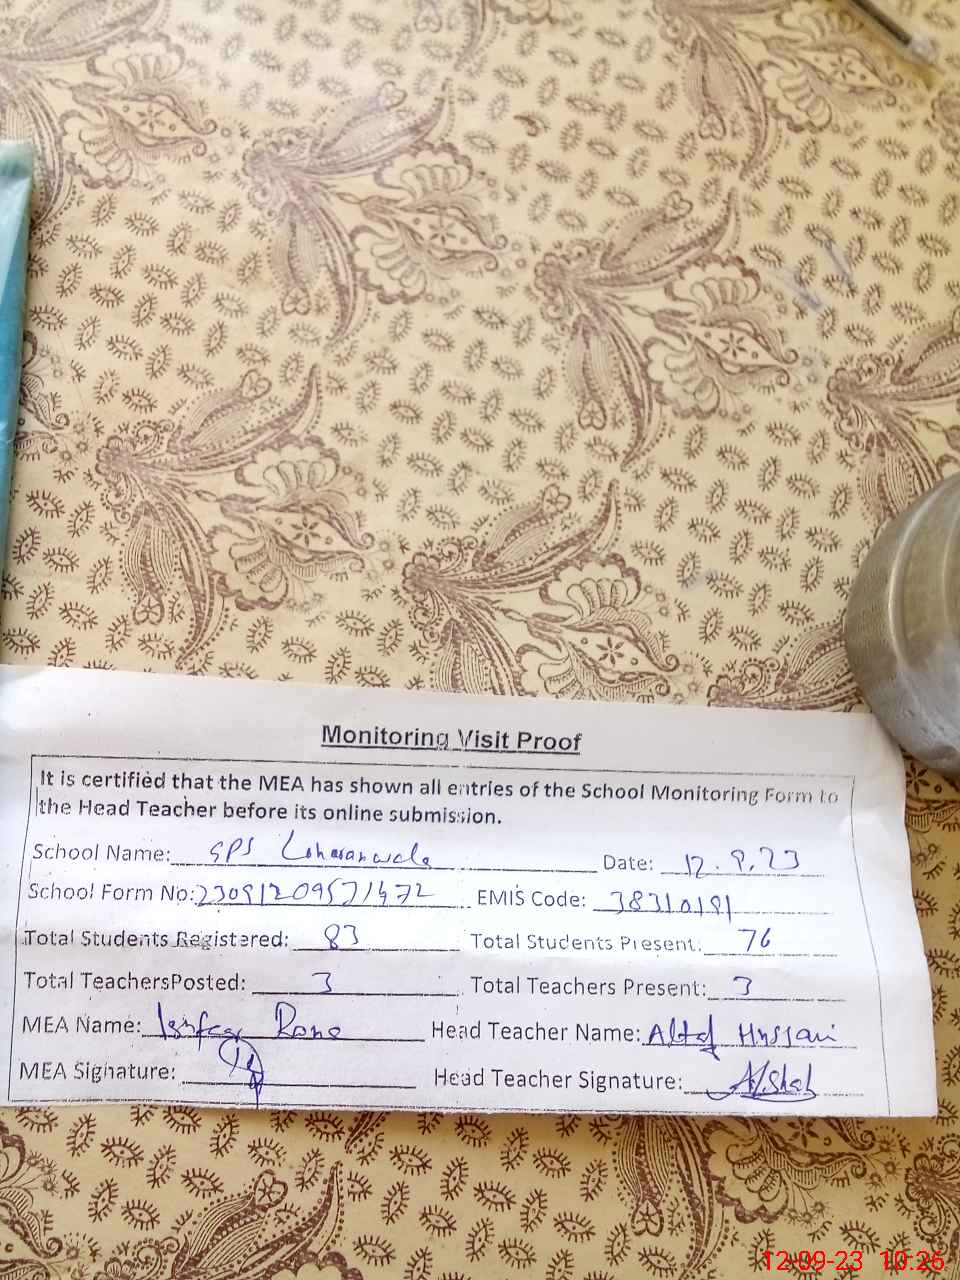 Monitoring Visit Proof
It is certified that the MEA has shown all entries of the School Monitoring Form to
the Head Teacher before its online submission.
School Name: GPS Loharanwala Date: 12.9.23
School Form No: EMIS Code: 38310191
Total Students Registered: 83 Total Students Present: 76
Total TeachersPosted: 3 Total Teachers Present: 3
MEA Name: Head Teacher Name: Altaf Hussain
MEA Signature: Head Teacher Signature:
12-09-23 10:26